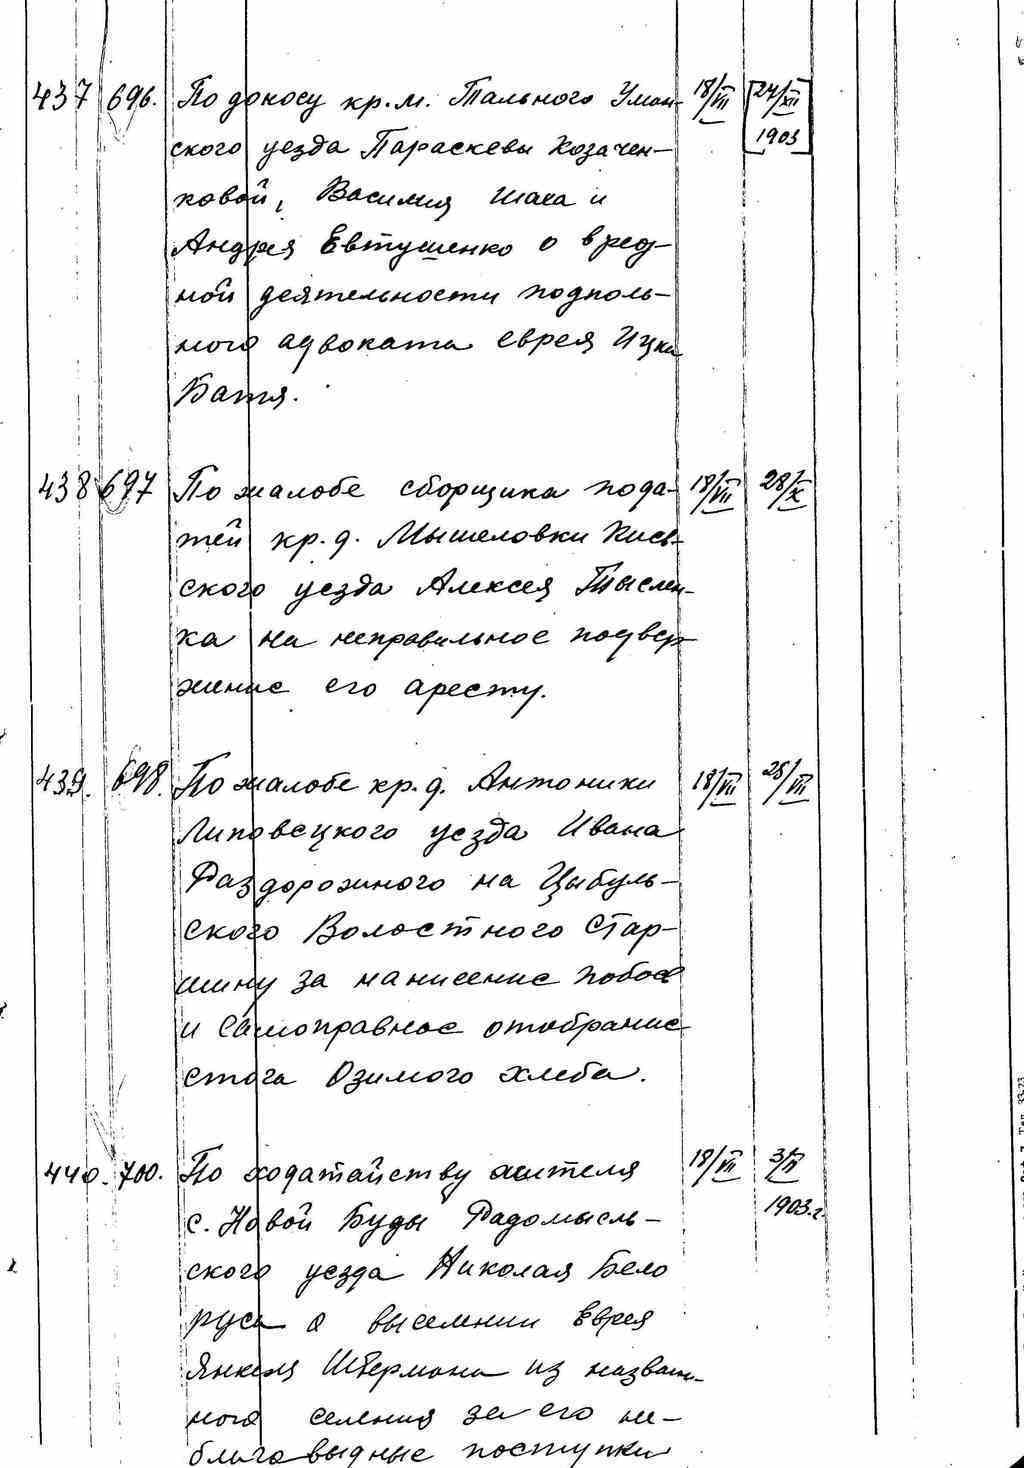 437 696. По доносу кр. м. Тального Уман- 18/VII [24/XII
ского уезда Параскевы Козачен- 1903]
ковой, Василия Шаха и
Андрея Евтушенко о вред-
ной деятельности подполь-
ного адвоката еврея Ицка
Батя.
438 697 По жалобе сборщика пода- 18/VII 28/X
тей кр. д. Мышеловки Киев-
ского уезда Алексея Тыслен-
ка на неправильное подвер
жение его аресту.
439. 698. По жалобе кр. д. Антоники 18/VII 28/VII
Липовецкого уезда Ивана
Раздорожного на Цыбуль-
ского Волостного Стар-
шину за нанисение побоев
и самоправное отобрание
стога Озимого хлеба.
440. 700. По ходатайству жителя 18/VII
с. Новой Буды Радомысль- 1903.г.
ского уезда Николая Бело
руса о выселении Еврея
Янкеля Штермана из назван-
ного селения за его не-
благовидные поступки